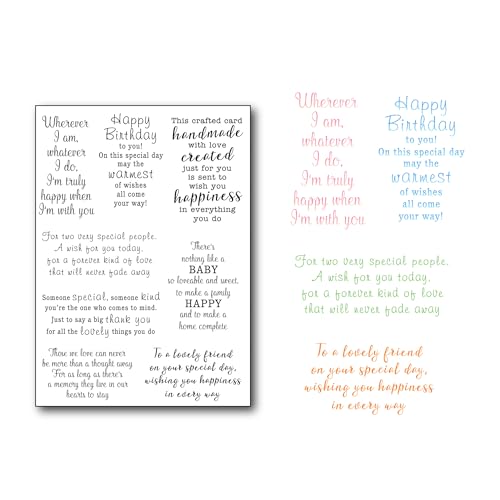 Wherever
I am,
whatever
I do,
I'm truly
happy when
I'm with you
Happy
Birthday
to you!
On this special day
may the
warmest
of wishes
all come
your way!
This crafted card
handmade
with love
created
just for you
is sent to
wish you
happiness
in everything
you do
For two very special people.
A wish for you today,
for a forever kind of love
that will never fade away
There's
nothing like a
BABY
so loveable and sweet,
to make a family
HAPPY
and to make a
home complete
Someone special, someone kind
you're the one who comes to mind.
Just to say a big thank you
for all the lovely things you do
Those we love can never
be more than a thought away
For as long as there's
a memory they live in our
hearts to stay
To a lovely friend
on your special day,
wishing you happiness
in every way
Wherever
I am,
whatever
I do,
I'm truly
happy when
I'm with you
Happy
Birthday
to you!
On this special day
may the
warmest
of wishes
all come
your way!
For two very special people.
A wish for you today,
for a forever kind of love
that will never fade away
To a lovely friend
on your special day,
wishing you happiness
in every way